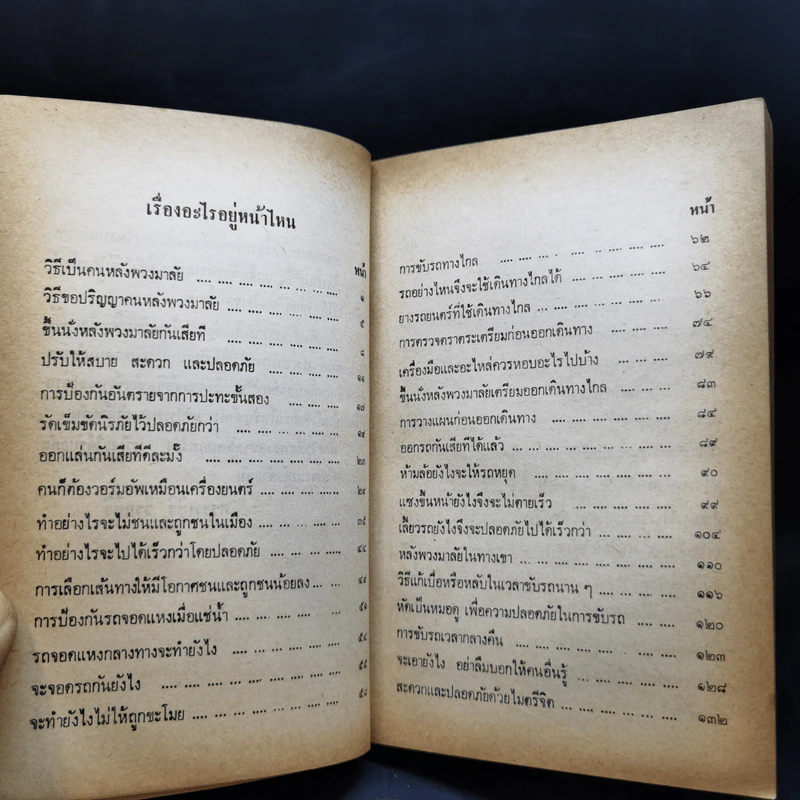 เรื่องอะไรอยู่หน้าไหน
หน้า
วิธีเป็นคนหลังพวงมาลัย .... .... ... ... ... ... ... ๑
วิธีขอปริญญาคนหลังพวงมาลัย .... ... ... ... ... ๕
ขึ้นนั่งหลังพวงมาลัยกันเสียที ... .... ... ... ... ๘
ปรับให้สบาย สะดวก และปลอดภัย ... ... ... ... ๑๑
การป้องกันอันตรายจากการปะทะขั้นสอง .... ... .... ๑๘
รัดเข็มขัดนิรภัยไว้ปลอดภัยกว่า .... ... ... ... .... ๑๙
ออกแล่นกันเสียทีดีละมั้ง .... ... ... .... ... .... ๒๓
คนก็ต้องวอร์มอัพเหมือนเครื่องยนตร์ .... ... .... ......
ทำอย่างไรจะไม่ชนและถูกชนในเมือง ... ... .... .... ๓๕
ทำอย่างไรจะไปได้เร็วกว่าโดยปลอดภัย .. ... ... .... ๔๔
การเลือกเส้นทางให้มีโอกาศชนและถูกชนน้อยลง ... ... ๔๗
การป้องกันรถจอดแหงเมื่อแช่น้ำ ... ... ... ... ... ๕๑
รถจอดแหงกลางทางจะทำยังไง ... .... ... ... ... ๕๔
จะจอดรถกันยังไง .... .... ... ... ... ... ... ๕๕
จะทำยังไงไม่ให้ถูกขะโมย .... ... ... ... ... ... ๕๘
หน้า
การขับรถทางไกล .... ... ... ... .. ... ... .... ๖๒
รถอย่างไหนจึงจะใช้เดินทางไกลได้ ... ... ... ... ๖๔
ยางรถยนตร์ที่ใช้เดินทางไกล ... ... ... ... ... ๖๖
การตรวจตราตระเตรียมก่อนออกเดินทาง ... ... .... ๗๔
เครื่องมือและอะไหล่ควรหอบอะไรไปบ้าง ... ... .... ๗๙
ขึ้นนั่งหลังพวงมาลัยเตรียมออกเดินทางไกล ... ... .... ๘๓
การวางแผนก่อนออกเดินทาง ... .... ... ... .... ๘๔
ออกรถกันเสียทีได้แล้ว ... ... ... ... ... .... ๘๙
ห้ามล้อยังไงจะให้รถหยุด .... ... ... ... ... .... ๙๐
แซงขึ้นหน้ายังไงจึงจะไม่ตายเร็ว ... ... ... ... .... ๙๙
เลี้ยวรถยังไงจึงจะปลอดภัยไปได้เร็วกว่า ... ... ... .... ๑๐๔
หลังพวงมาลัยในทางเขา ... ... ... ... ... .... ๑๑๐
วิธีแก้เบื่อหรือหลับในเวลาขับรถนาน ๆ ... ... ... .... ๑๑๖
หัดเป็นหมอดู เพื่อความปลอดภัยในการขับรถ ... ... .... ๑๒๐
การขับรถเวลากลางคืน ... ... ... ... ... .... ๑๒๓
จะเอายังไง อย่าลืมบอกให้คนอื่นรู้ ... .... ... ... .... ๑๒๘
สะดวกและปลอดภัยด้วยไมตรีจิต ... ... ... ... .... ๑๓๒